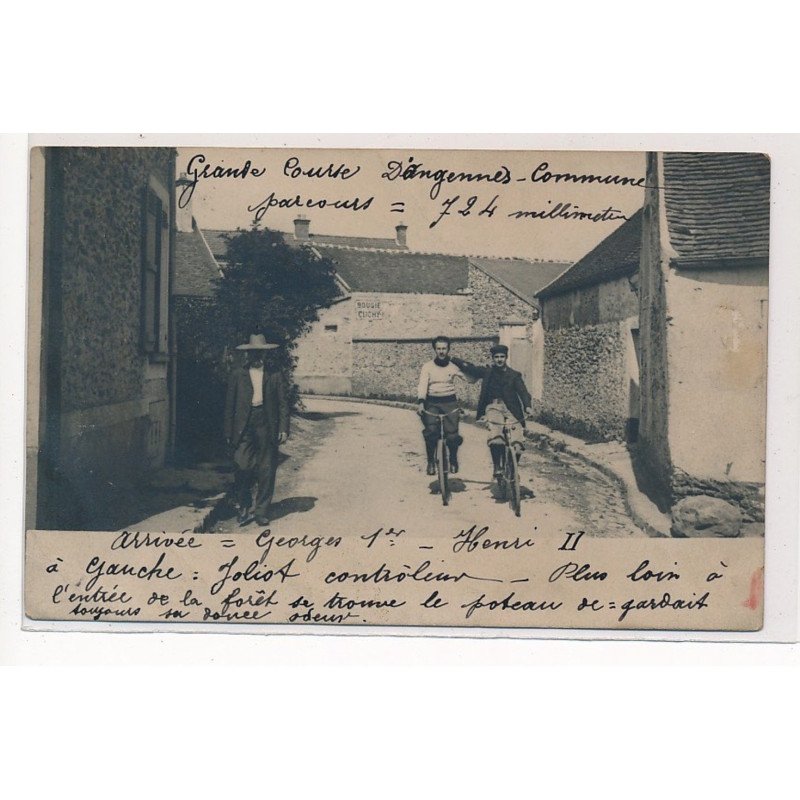 Grande Course D'angennes-Commune
parcours = 724 millimètres
BOUGIE
CLICHY
Arrivée = Georges 1er - Henri II
à Gauche : Joliot contrôleur - Plus loin à
l'entrée de la forêt se trouve le poteau de = gardait
toujours sa donée odeur.